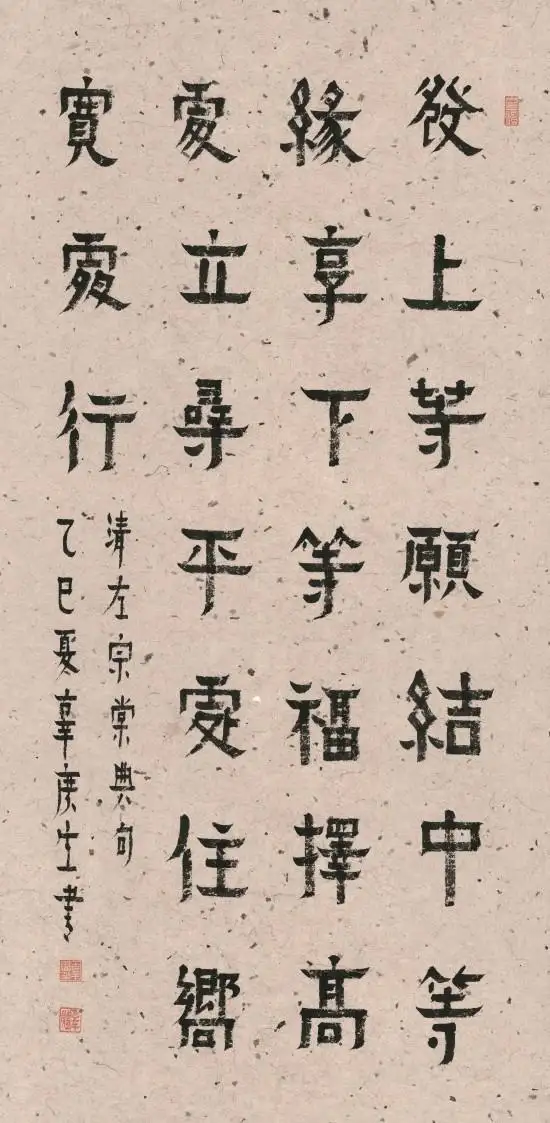 發上等願結中等
緣享下等福擇高
處立尋平處住嚮
寬處行
清左宗棠典句
乙巳夏辛庚生書